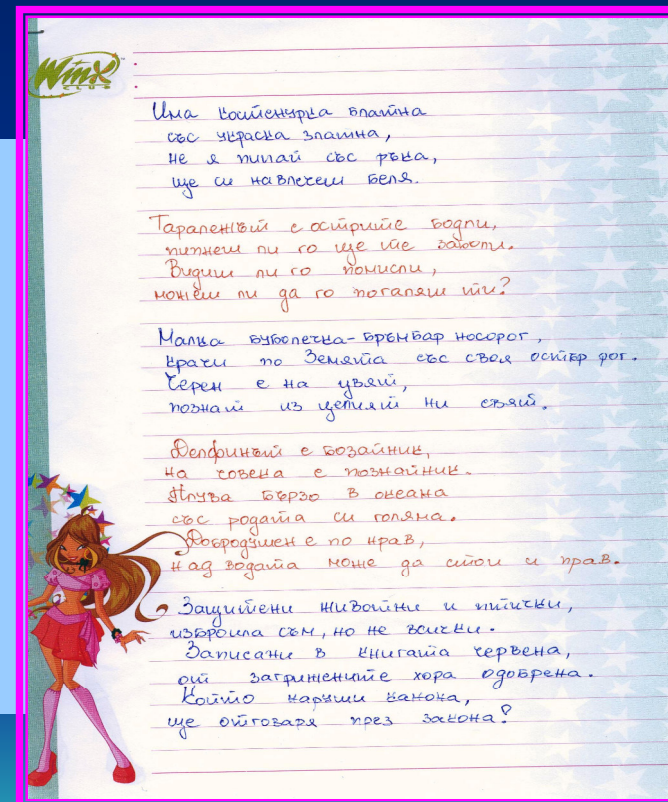 Winx
CLUB
Има костенурка блатна
със украска златна,
не я пипай със ръка,
ще си навлечеш беля.
Таралежът с острите бодли,
пипнеш ли го ще те заболи.
Видиш ли го помисли,
можеш ли да го погалиш ти?
Малка буболечка-бръмбар носорог,
крачи по Земята със своя остър рог.
Черен е на цвят,
познат из целият ни свят.
Делфинът е бозайник,
на човека е познайник.
Плува бързо в океана
със родата си голяма.
Добродушен е по нрав,
над водата може да стои и прав.
Защитени животни и птички,
изброила съм, но не всички.
Записани в книгата червена,
от загрижените хора одобрена.
Който наруши канона,
ще отговаря през закона!